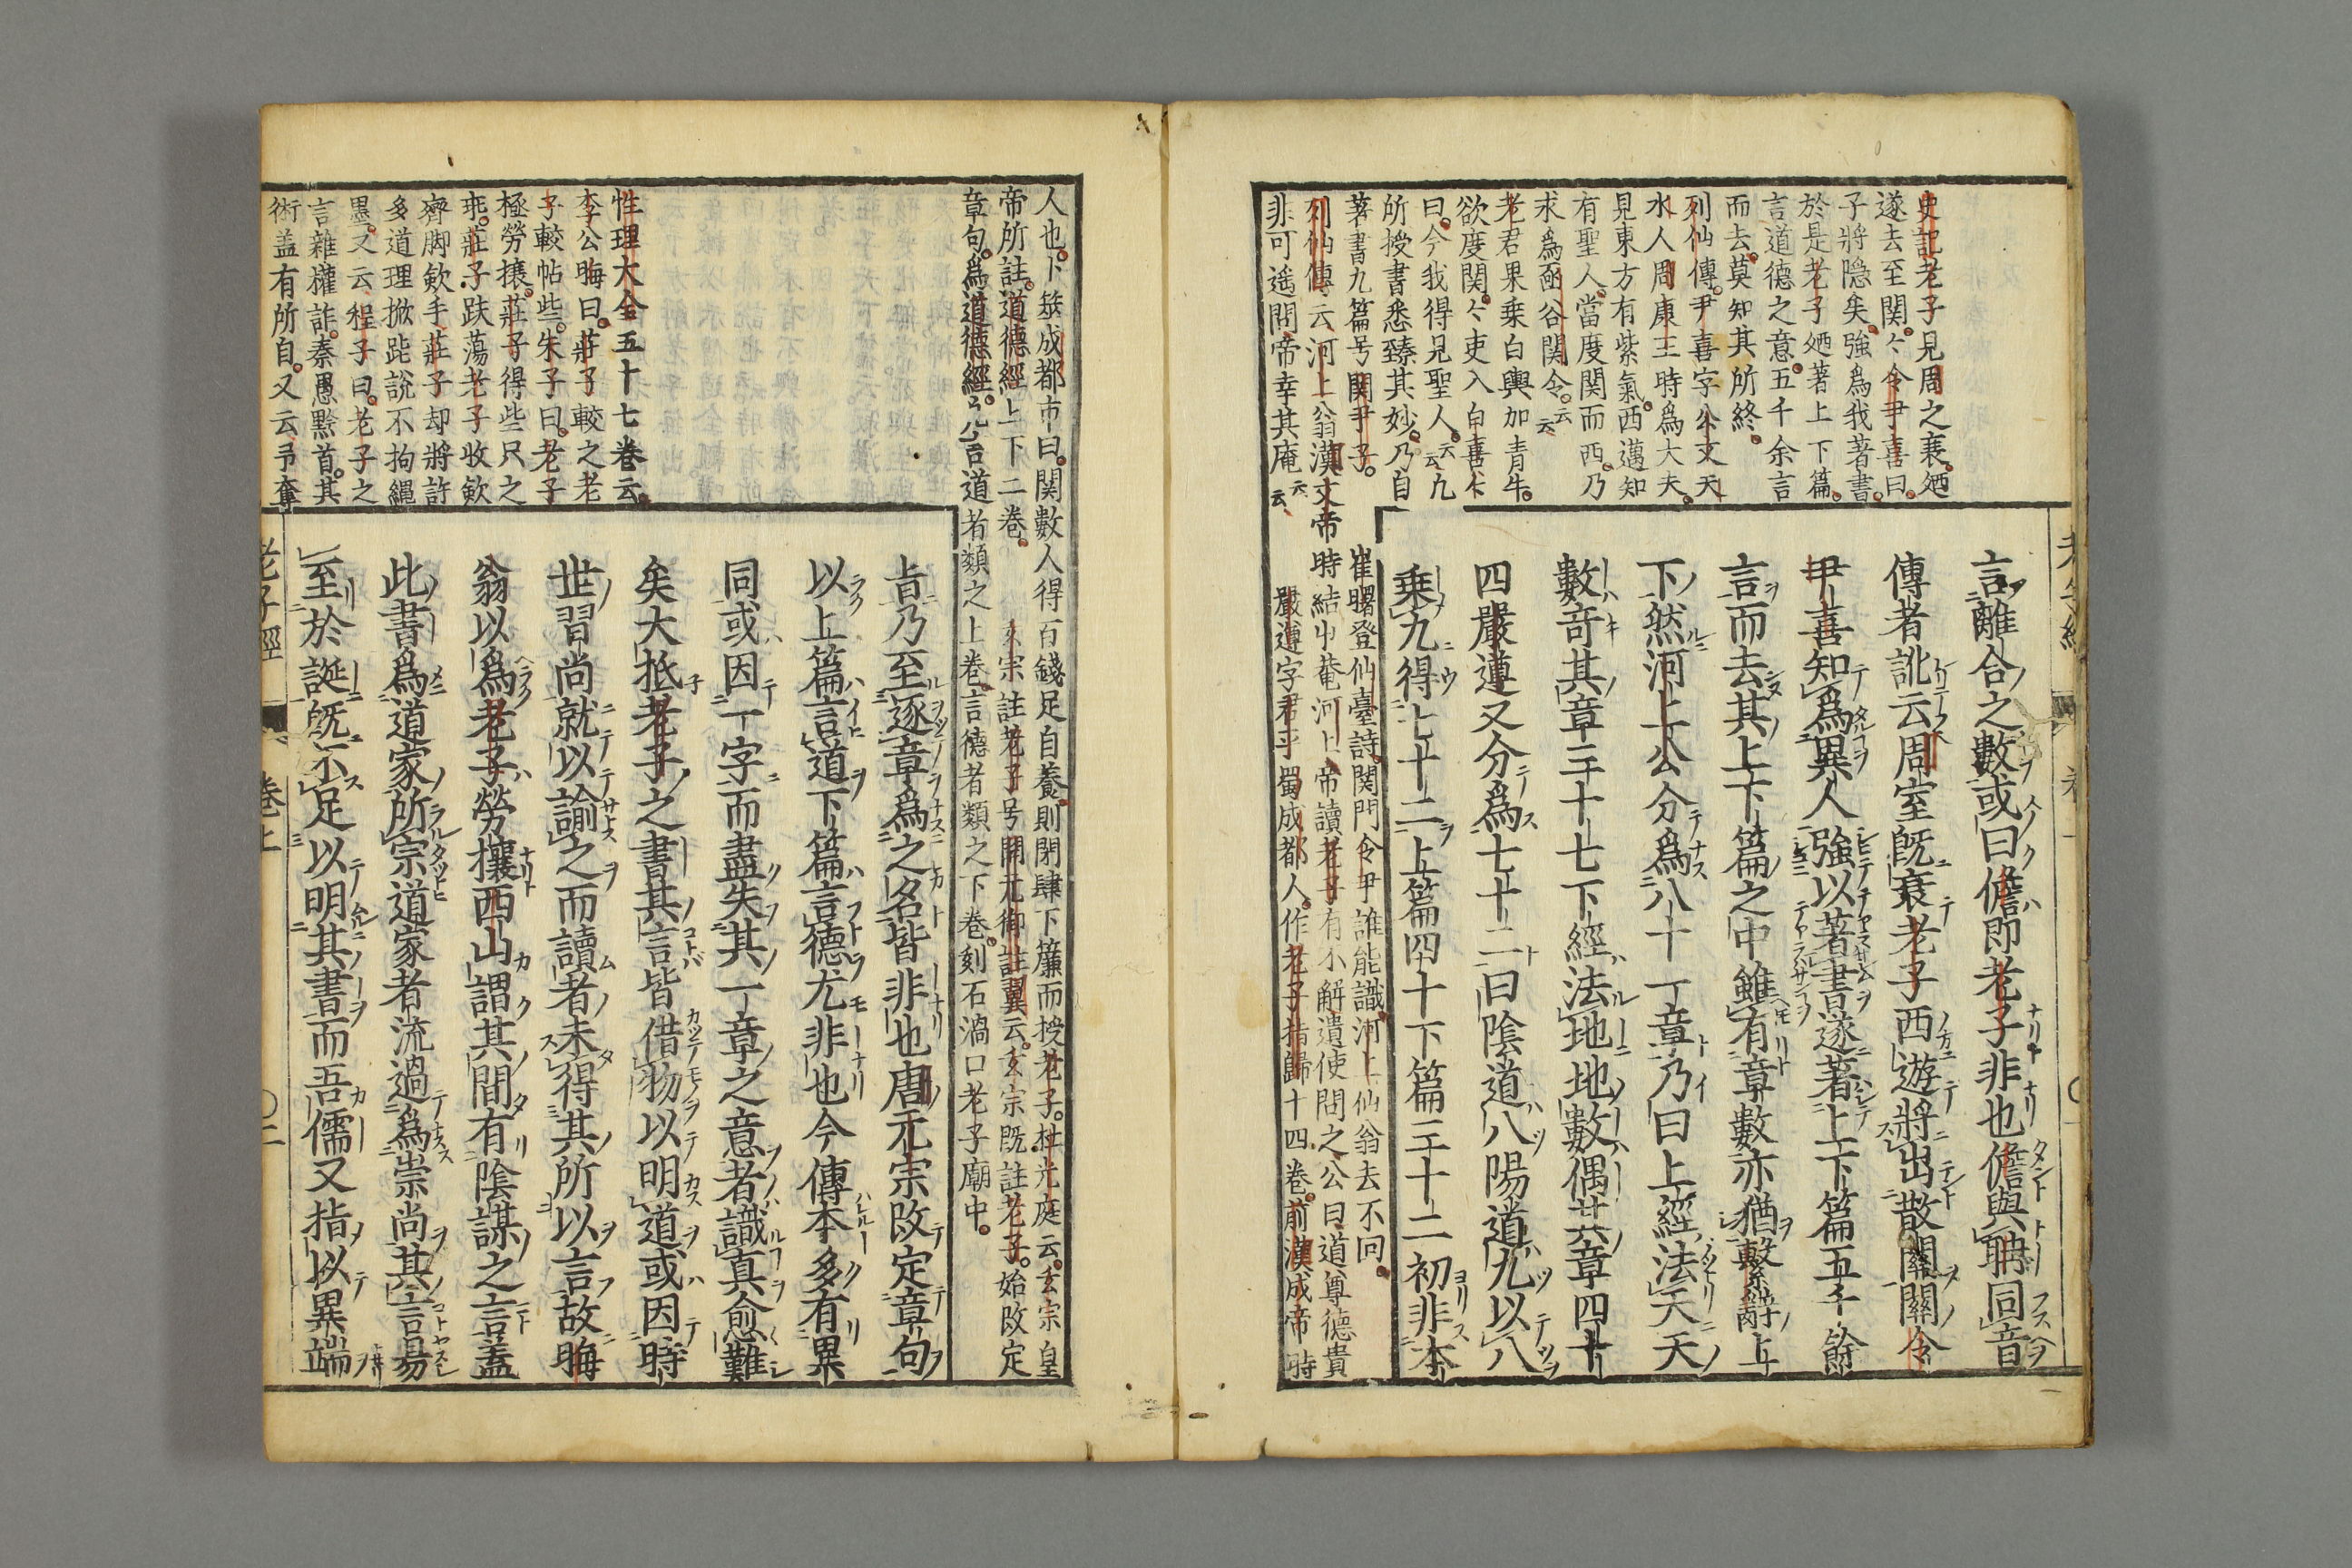 史記老子見周之衰廼
遂去至関〻令尹喜曰
子將隠矣強爲我著書
於是老子廼著上下篇
言道德之意五千余言
而去莫知其所終
列仙傳尹喜字公文天
水人周康王時爲大夫
見東方有紫氣西邁知
有聖人當度関而西乃
求爲函谷関令云云
老君果乗白輿加青牛
欲度関〻吏入白喜
曰今我得見聖人云云九
所授書悉臻其妙乃自
著書九篇号関尹子
崔曙登仙臺詩関門令尹誰能識河上仙翁去不回
列仙傳云河上翁漢文帝時結中菴河上帝讀老子有不解遣使問之公曰道尊德貴
非可遥問帝幸其庵云云
嚴遵字君平蜀成都人作老子指歸十四巻前漢成帝時
言離合之數或曰儋即老子非也儋與聃同音
傳者訛云周室旣衰老子西遊將出散關關令
尹喜知爲異人強以著書遂著上下篇五千餘
言而去其上下篇之中雖有章數亦猶繫辭上
下然河上公分爲八十一章乃曰上經法天天
數奇其章三十七下經法地地數偶其章四十
四嚴遵又分爲七十二曰陰道八陽道九以八
乗九得七十二上篇四十下篇三十二初非本
人也卜筮成都市曰関數人得百錢足自養則閉肆下簾而授老子杜光庭云玄宗皇
帝所註道德經上下二巻
玄宗註老子号開元御註翼云玄宗既註老子始改定
章句爲道德經凢言道者類之上巻言德者類之下巻刻石渦口老子廟中
性理大全五十七巻云
李公晦曰莊子較之老
子較帖些朱子曰老子
極勞攘莊子得些只之
乖莊子跌蕩老子收歛
齊脚歛手莊子却將許
多道理掀跎說不拘縄
墨又云程子曰老子之
言雜權詐秦愚黔首其
術盖有所自又云予奪
旨乃至逐章爲之名皆非也唐元宗改定章句
以上篇言道下篇言德尤非也今傳本多有異
同或因一字而盡失其一章之意者識真愈難
矣大抵老子之書其言皆借物以明道或因時
世習尚就以諭之而讀者未得其所以言故晦
翁以爲老子勞攘西山謂其間有陰謀之言蓋
此書爲道家所宗道家者流過爲崇尚其言易
至於誕旣不足以明其書而吾儒又指以異端
老子經 巻上 〇二